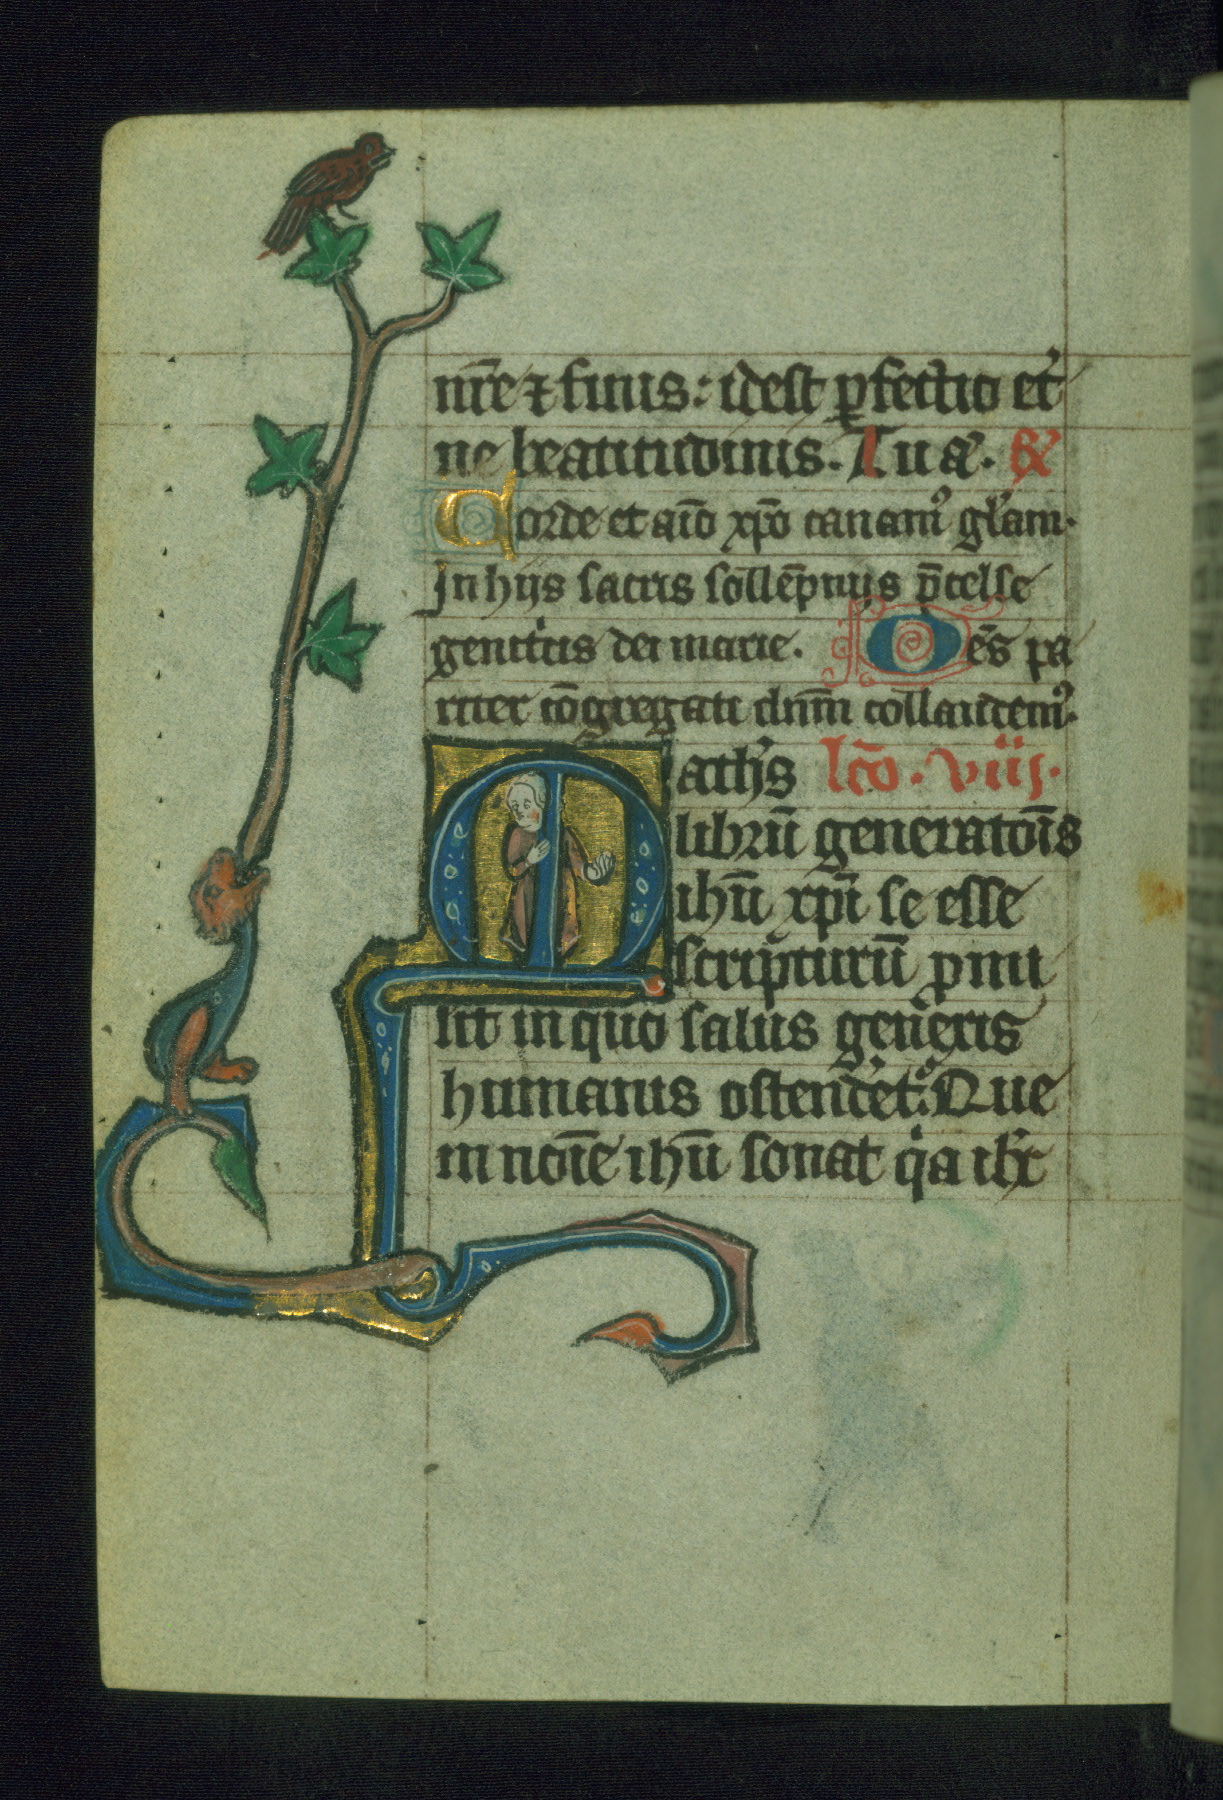 nr̄e ⁊ finis: idest ꝑfectio et̾
ne beatitudinis. Tu aū. ℟
Corde et aīo xp̄o canam᷒ gl̾am.
In hijs sacris sollēpniis p̄celse
genit̾cis dei marie. Om̄s pa
riter cōgregati dn̄m collaudem᷒.
Math̾s lc̄o. viij.
librū generatōis
ihū xp̄i se esse
scripturū ꝓmi
sit in quo salus generis
humanis ostendet̾. Que
in noīe ihū sonat q̾a ih̾c